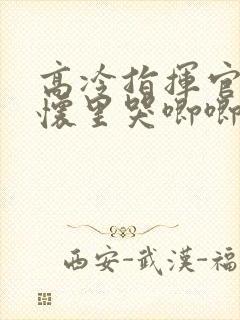 高冷指揮官
懷里哭唧唧
西安-武漢-福